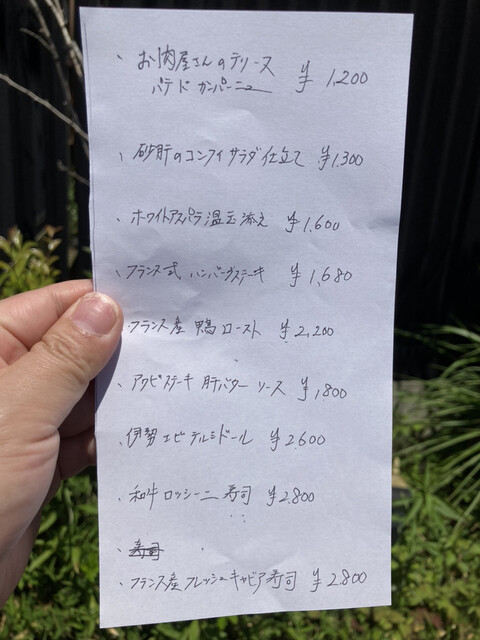 、お肉屋さんのテリーヌ
パテドカンパーニュ ¥1,200
、砂肝のコンフィサラダ仕立て ¥1,300
、ホワイトアスパラ温玉添え ¥1,600
、フランス式 ハンバーグステーキ ¥1,680
、フランス産 鴨 ロースト ¥2,200
、アワビステーキ 肝バター ソース ¥1,800
、伊勢エビテルミドール ¥2,600
、和牛ロッシーニ寿司 ¥2,800
、寿司
、フランス産フレッシュキャビア寿司 ¥2,800